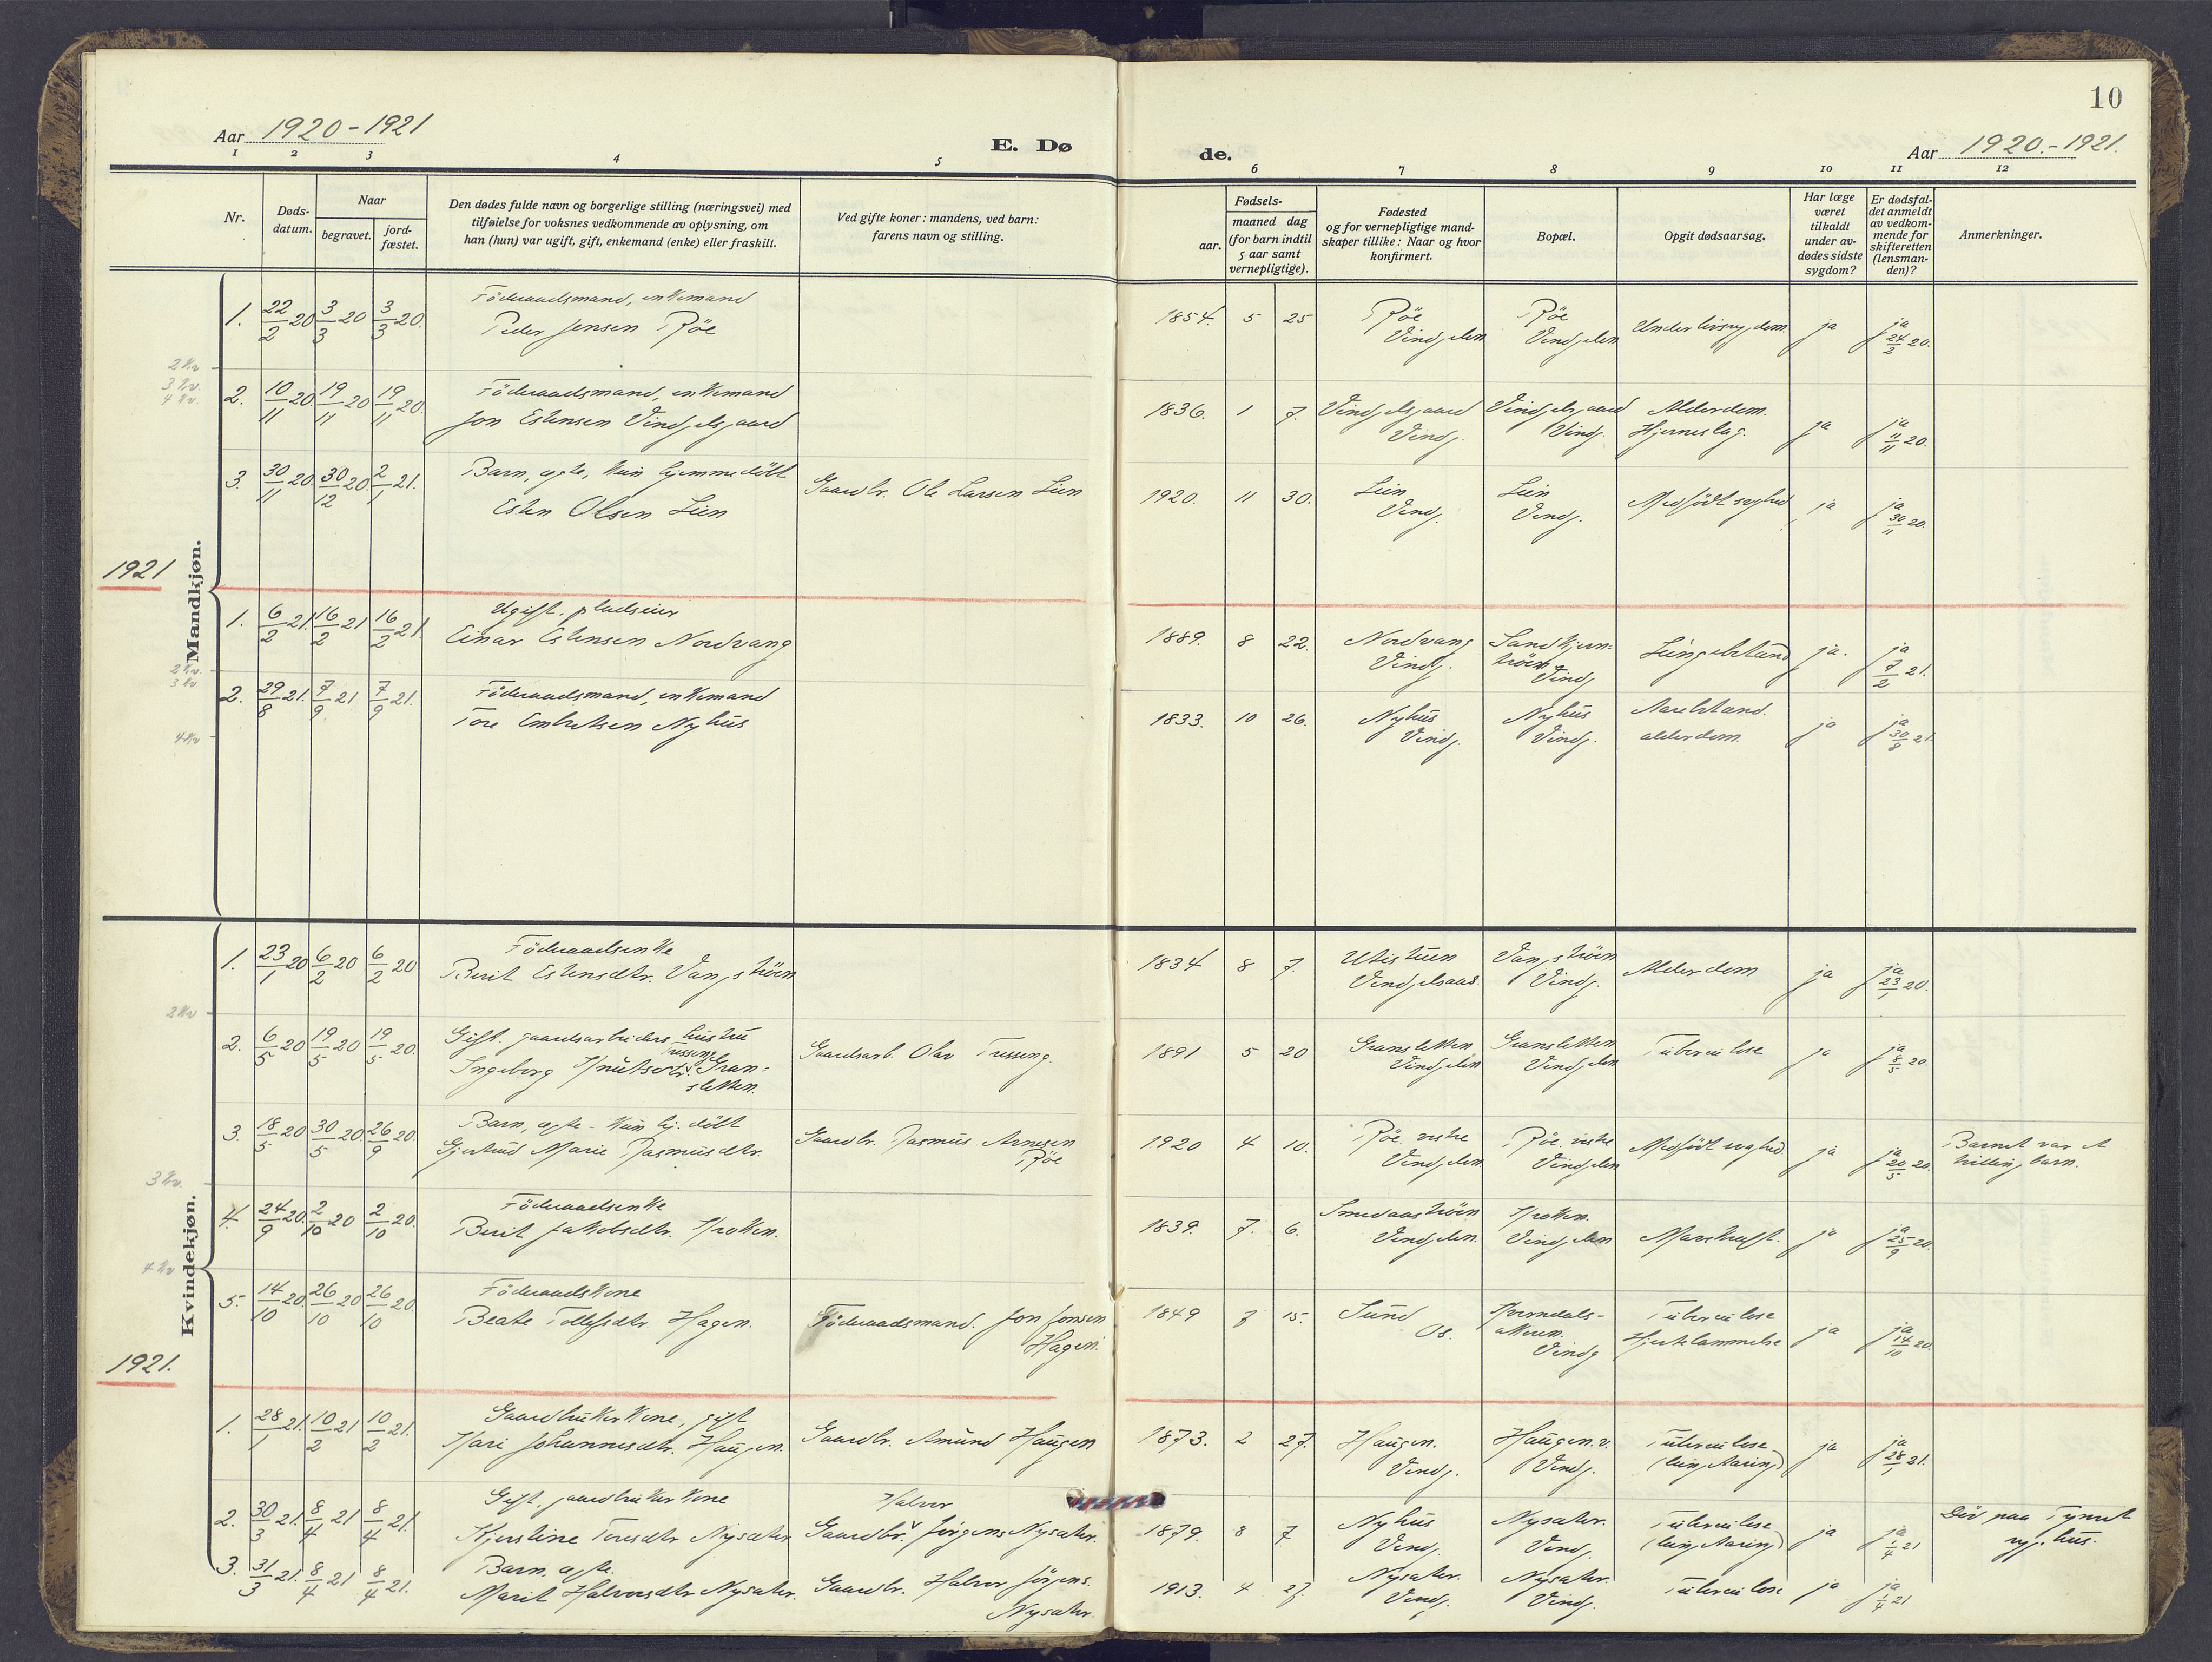 10
Aar 1920-1921
E. Dø
de.
Aar 1920.-1921.
1 2 3 4 5 6 7 8 9 10 11 12
Nr.
Døds-
datum.
Naar
begravet.
jord-
fæstet.
Den dødes fulde navn og borgerlige stilling (næringsvei) med
tilføielse for voksnes vedkommende av oplysning, om
han (hun) var ugift, gift, enkemand (enke) eller fraskilt.
Ved gifte koner: mandens, ved barn:
farens navn og stilling.
Fødsels-
aar.
maaned dag
(for barn indtil
5 aar samt
vernepligtige).
Fødested
og for vernepligtige mand-
skaper tillike: Naar og hvor
konfirmert.
Bopæl.
Opgit dødsaarsag.
Har læge
været
tilkaldt
under av-
dødes sidste
sygdom?
Er dødsfal-
det anmeldt
av vedkom-
mende for
skifteretten
(lensman-
den)?
Anmerkninger.
Mandkjøn.
1. 22/2 20 3/3 20 3/3 20. Föderaadsmand, enkemand
Peder Jensen Röe
1854. 5 25 Röe
Vingelen
Röe
Vingelen
Underlivssygdom. ja ja
24/2 20.
2 kv
3 kv.
4 kv.
2. 10/11 20. 19/11 20 19/11 20. Föderaadsmand, enkemand
Jon Estensen Vingelsgaard
1836. 1 7. Vingelsgaard
Ving.
Vingelsgaard
Ving.
Alderdom.
Hjerneslag.
ja ja
11/11 20.
3. 30/11 20. 30/12 20 2/1 21. Barn, egte, kun hjemmedöbt
Esten Olsen Lien
Gaardbr. Ole Larsen Lien
1920. 11 30. Lien
Ving.
Lien
Ving.
Medfödt svaghed ja ja
30/11 20.
1921
1. 6/2 21. 16/2 21 16/2 21 Ugift. pladseier
Einar Estensen Nordvang
1889. 8 22. Nordvang
Ving.
Sandkjern-
tröen
Ving.
Lungebetænd ja. ja
7/2 21.
2 kv.
3 kv.
2. 29/8 21. 7/9 21 7/9 21. Föderaadsmand, enkemand
Tore Embretsen Nyhus
1833. 10 26. Nyhus
Ving.
Nyhus
Ving.
Aarebetænd.
alderdom.
ja ja
30/8 21.
4 kv
Kvindekjøn.
1. 23/1 20 6/2 20 6/2 20 Föderaadsenke
Berit Estensdtr. Vangströen
1834 8 7. Utistuen
Vingelsaas.
Vangströen
Ving.
Alderdom ja ja
23/1 20.
2 kv
2. 6/5 20 19/5 20 19/5 20. Gift. gaardsarbeiders hustru
Ingeborg Knutsdtr. Tresseng Gran-
sletten.
Gaardsarb. Olav Tresseng.
1891 5 20 Gransletten
Vingelen
Gransletten
Vingelen
Tuberculose ja ja
8/5 20.
3. 18/5 20 30/5 20. 26/9 20. Barn, egte - kun hj. döbt
Gjertrud Marie Rasmusdtr.
Gaardbr. Rasmus Arnesen
Röe
1920 4 10. Röe. vestre
Vingelen
Röe. vestre
Vingelen
Medfödt svaghed. ja ja
20/5 20.
Barnet var et
trillingbarn.
3 kv.
4. 24/9 20. 2/10 20 2/10 20. Föderaadsenke
Berit Jakobsdtr. Kroken.
1839. 7. 6. Smedaaströen
Vingelen.
Kroken.
Vingelen
Mavekræft. ja ja
25/9 20.
4 kv
5. 14/10 20. 26/10 20 26/10 20. Föderaadskone
Beate Tollefsdtr. Hagen.
Föderaadsmand. Jon Jonsen
Hagen.
1849 3 15. Sund
Os.
Kverndals-
akeren.
Ving
Tuberculose
Hjertelammelse
ja ja
14/10 20.
1921.
1. 28/1 21. 10/2 21 10/2 21. Gaardbrukerkone, gift
Kari Johannesdtr. Haugen.
Gaardbr. Amund Haugen
1873. 2 27. Haugen.
Ving.
Haugen. v.
Ving.
Tuberculose
(lungetæring)
ja ja
28/1 21.
2. 30/3 21. 8/4 21 8/4 21. Gift, gaardbrukerkone
Kjerstine Toresdtr Nysæter
Halvor
Gaardbr. Jörgens Nysæter.
1879. 8 7 Nyhus
Ving.
Nysæter.
Ving.
Tuberculose
(lungetæring)
ja ja
1/4 21
Död paa Tynset
sygehus.
3. 31/3 21. 8/4 21 8/4 21. Barn, egte.
Marit Halvorsdtr Nysæter.
Gaardbr. Halvor Jörgens.
Nysæter.
1913. 4 27. Nysæter.
Ving.
Nysæter.
Ving.
Tuberculose ja ja
1/4 21